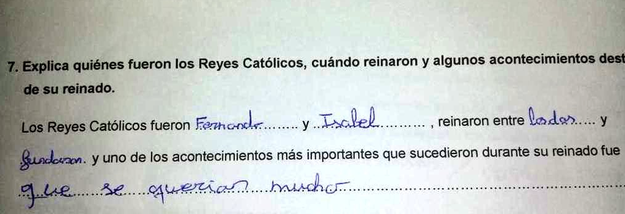 7. Explica quiénes fueron los Reyes Católicos, cuándo reinaron y algunos acontecimientos dest
de su reinado.
Los Reyes Católicos fueron Fernando......... y ..Isabel............ , reinaron entre todos..... y
fundaron. y uno de los acontecimientos más importantes que sucedieron durante su reinado fue
que.....se....querian....mucho........................................